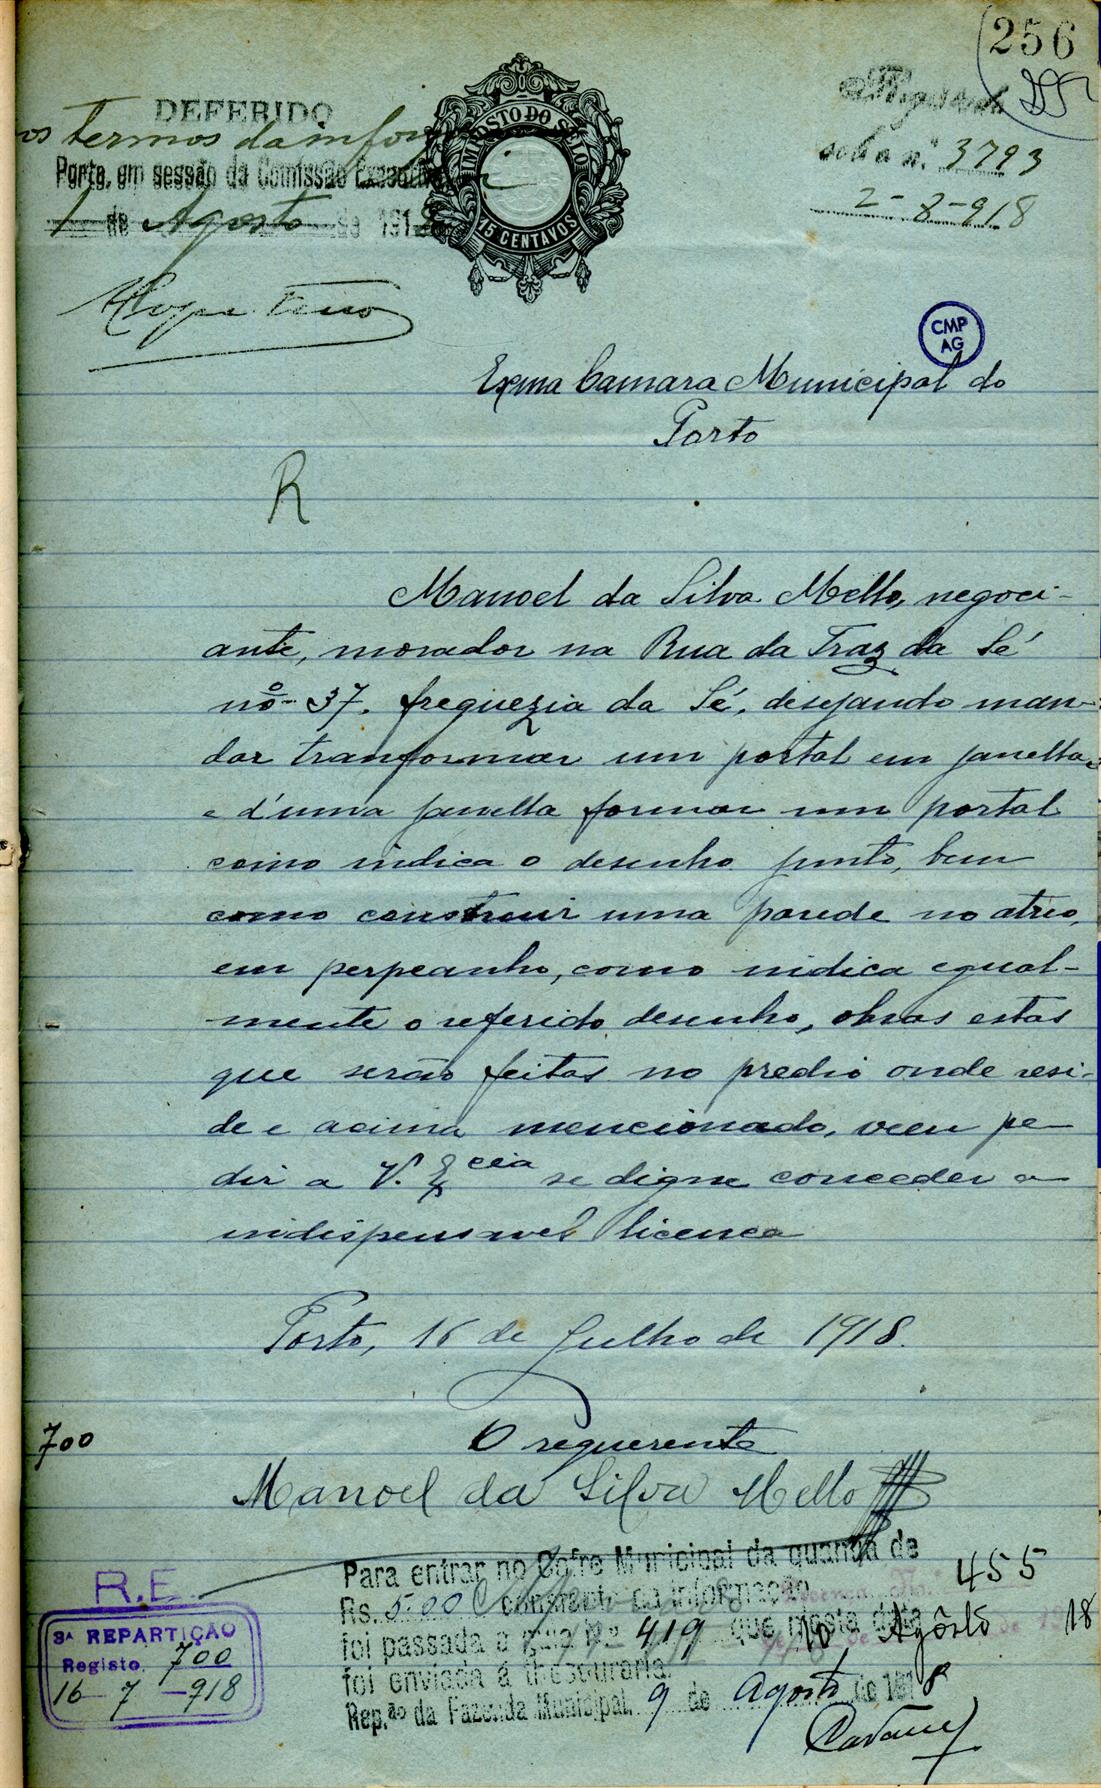 256
DEFERIDO
os termos da inform
Porto, em sessão da Comissão Executiva
1 de Agosto de 1918
IMPOSTO DO SELO
15 CENTAVOS
Registado
sob o n.º 3793
2-8-918
CMP
AG
Exma Camara Municipal do
Porto
R
Manoel da Silva Mello, negoci-
ante, morador na Rua da Traz da Sé
nº 37, freguezia da Sé, desejando man-
dar tranformar um portal em janella
e d'uma janella formar um portal
como indica o desenho junto, bem
como construir uma parede no atrio,
em perpeanho, como indica egual-
mente o referido desenho, obras estas
que serão feitas no predio onde resi-
de e acima mencionado, vem pe-
dir a V. Ex.cia se digne conceder a
indispensavel licença
Porto, 16 de Julho de 1918.
700
O requerente
Manoel da Silva Mello
Para entrar no Cofre Municipal da quantia de
Rs. 500 constante da informação
foi passada a guia nº 419 que nesta data
foi enviada á thesouraria.
Rep.ão da Fazenda Municipal 9 de Agosto de 1918
Licença N.º 455
10 de Agôsto de 1918
R.E.
3ª REPARTIÇÃO
Registo 700
16-7-918